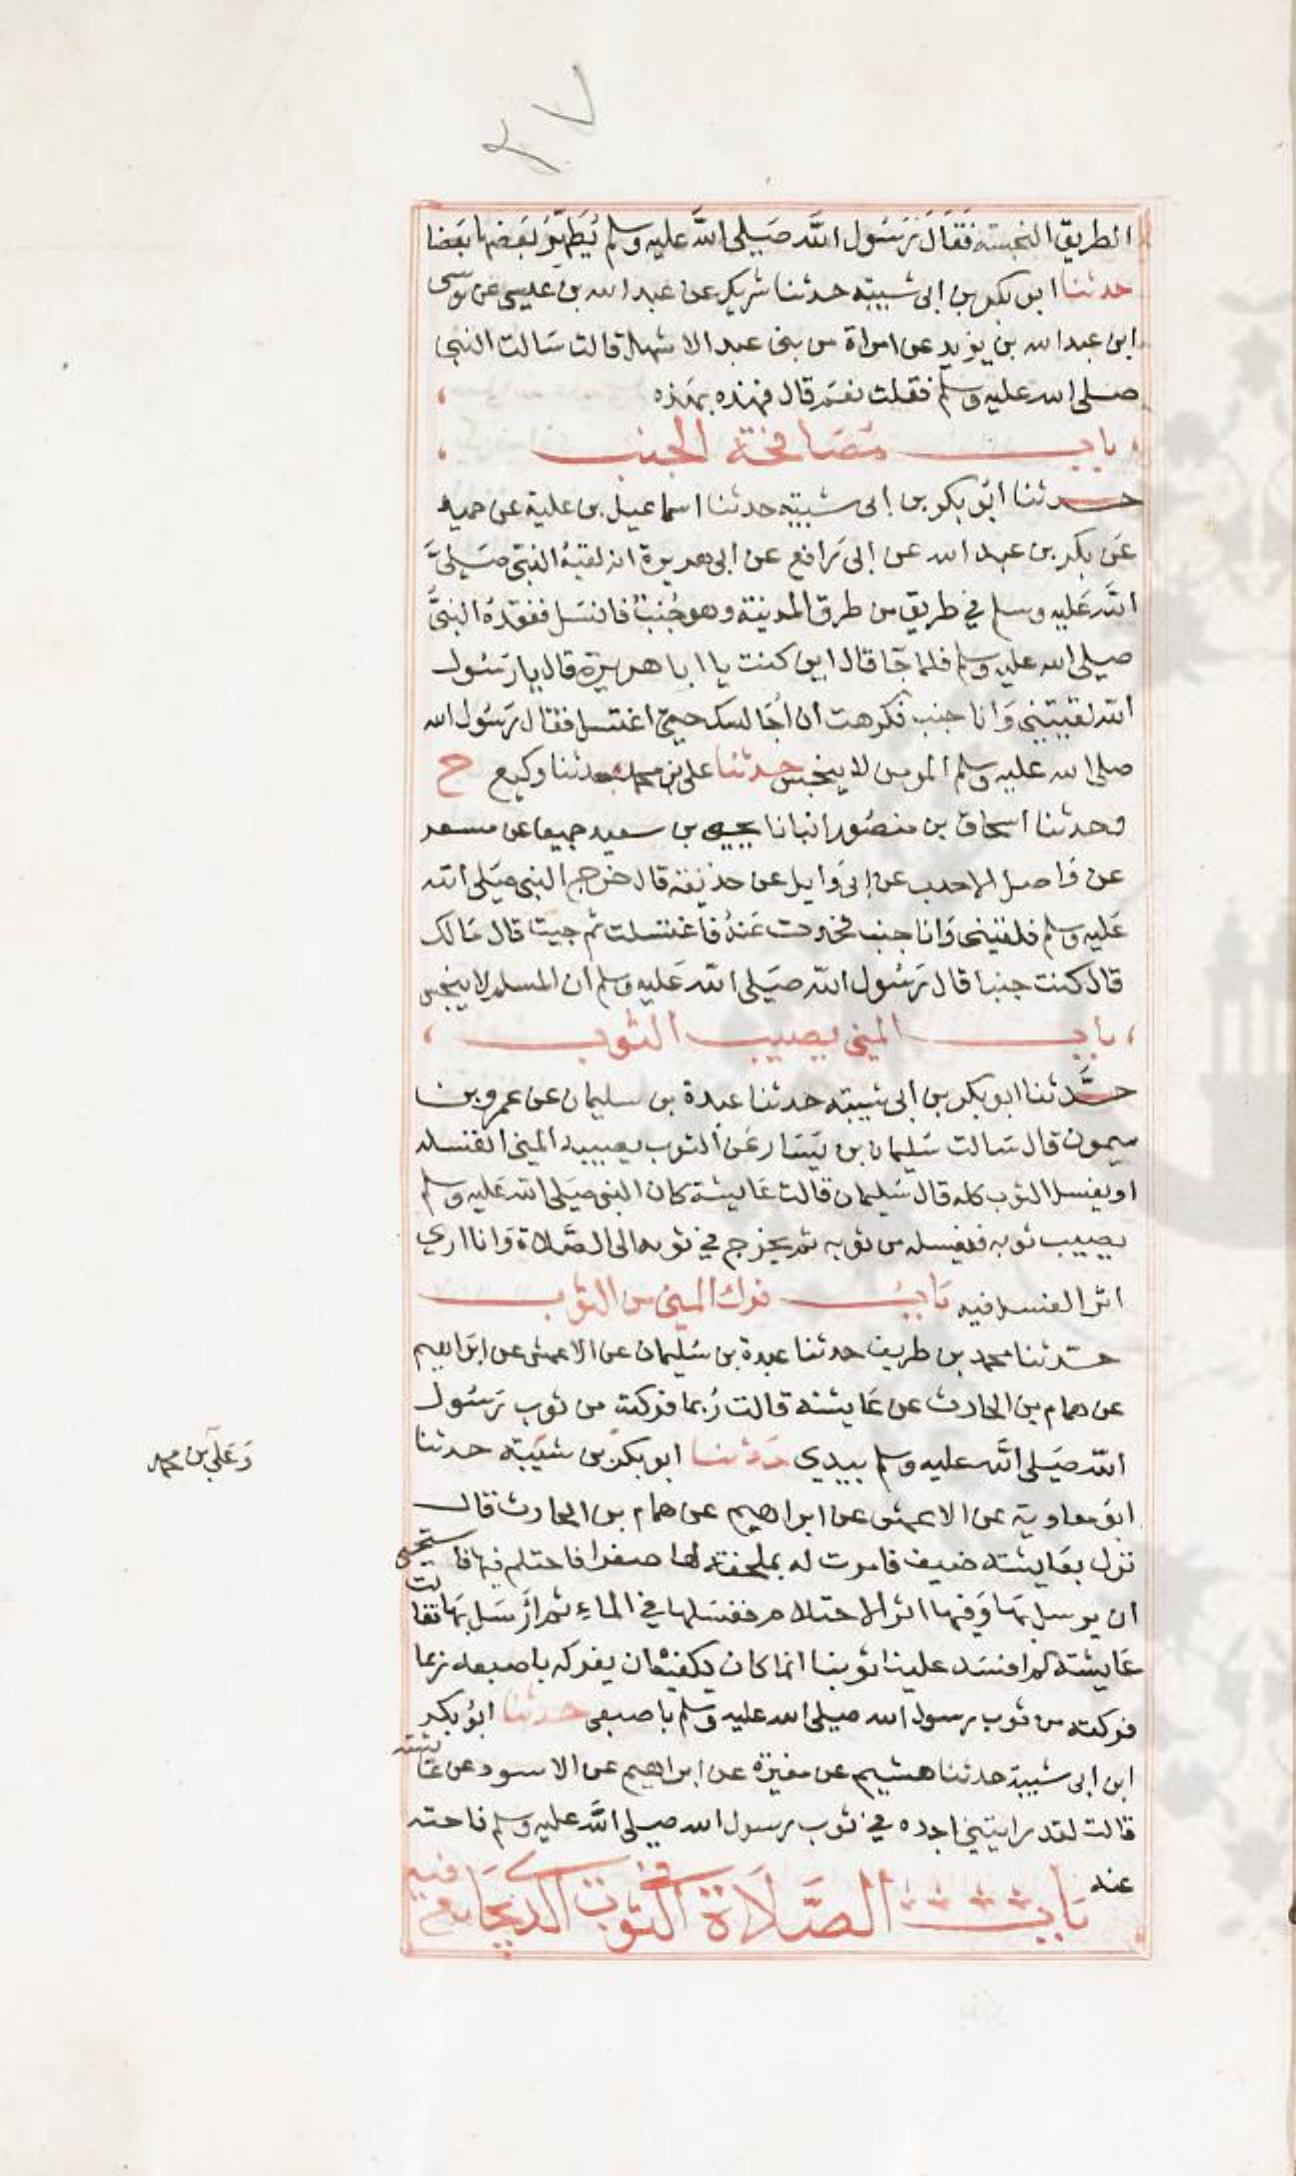 ٤٧
الطريق النجسة فَقَالَ رَسُول الله صَلى الله عليه وسلم يُطَهِّرُ بَعضها بَعضا
حدثنا ابو بكر بن ابى شيبة حدثنا شريك عن عبد الله بن عيسى عن موسى
ابن عبد الله بن يزيد عن امراة من بنى عبد الاشهل قالت سَالت النبى
صلى الله عليه وسلم فقلت نعم قال فهذه بهذه
باب مُصَافحة الجنب
حدثنا ابو بكر بن ابى شيبة حدثنا اسماعيل بن علية عن حميد
عَن بكر بن عبد الله عن ابى رَافع عن ابى هريرة انه لقيهُ النبى صَلى
الله عَليه وسلم في طريق من طرق المدينة وهو جُنبٌ فانسَل ففقدهُ النبىُّ
صلى الله عليه وسلم فلما جَا قال اين كنت يا ابا هريرة قال يارَسُول
الله لقيتنى وَانا جنب فكرهت ان اُجَالسك حتى اغتسل فقال رَسُول الله
صلى الله عليه وسلم المومن لا ينجس حدثنا على بن محمد حدثنا وكيع ح
وحدثنا اسحاق بن منصُور انبانا يحيى بن سعيد جميعا عن مسعر
عن وَاصل الاحدب عن ابى وَايل عن حذيفة قال خرج النبى صَلى الله
عَليه وسلم فلقينى وَانا جنب فحدت عَنهُ فاغتسلت ثم جيت قال مَالك
قال كنت جنبا قال رَسُول الله صَلى الله عَليه وسلم ان المسلم لا ينجس
باب المنى يصيب الثوب
حدَّثنا ابو بكر بن ابى شيبة حدثنا عبدة بن سليمان عن عمرو بن
ميمون قال سَالت سَليمان بن يَسَار عَن الثوب يصيبه المنى انغسله
او يغسل الثوب كله قال سَليمان قالت عَايشة كان النبى صَلى الله عَليه وسلم
يصيب ثوبه فيغسله من ثوبه ثم يخرج في ثوبه الى الصَّلاة وَانا ارى
اثر الغسل فيه بَابُ فرك المنى من الثوب
حدثنا محمد بن طريف حدثنا عبدة بن سُليمان عن الاعمش عن ابرَاهيم
عن همام بن الحارث عن عَايشة قالت رُبما فركته من ثوب رَسُول
الله صَلى الله عليه وسلم بيدي حدثنا ابو بكر بن شيبَة حدثنا
وَعَلى بن محمد
ابو معاوية عن الاعمش عن ابراهيم عن همام بن الحارث قال
نزل بعَايشة ضيف فامرت له بملحفة لها صفرا فاحتلم فيها فاستحيى
ان يرسل بهَا وَفيها اثر الاحتلام فغسَلها في الماءِ ثم ارسَل بهَا فقالت
عَايشة لم افسَد علينا ثوبنا انما كان يكفيه ان يفركه باصبعه ربما
فركته من ثوب رسول الله صلى الله عليه وسلم باصبعى حدثنا ابُو بكر
ابن ابى شيبة حدثنا هشيم عن مغيرَة عن ابراهيم عن الاسود عن عَايشة
قالت لقد رايتنى اجده في ثوب رسول الله صلى الله عليه وسلم فاحته
عنه
بَاب الصَّلَاة في الثوب الذى يجَامع فيه